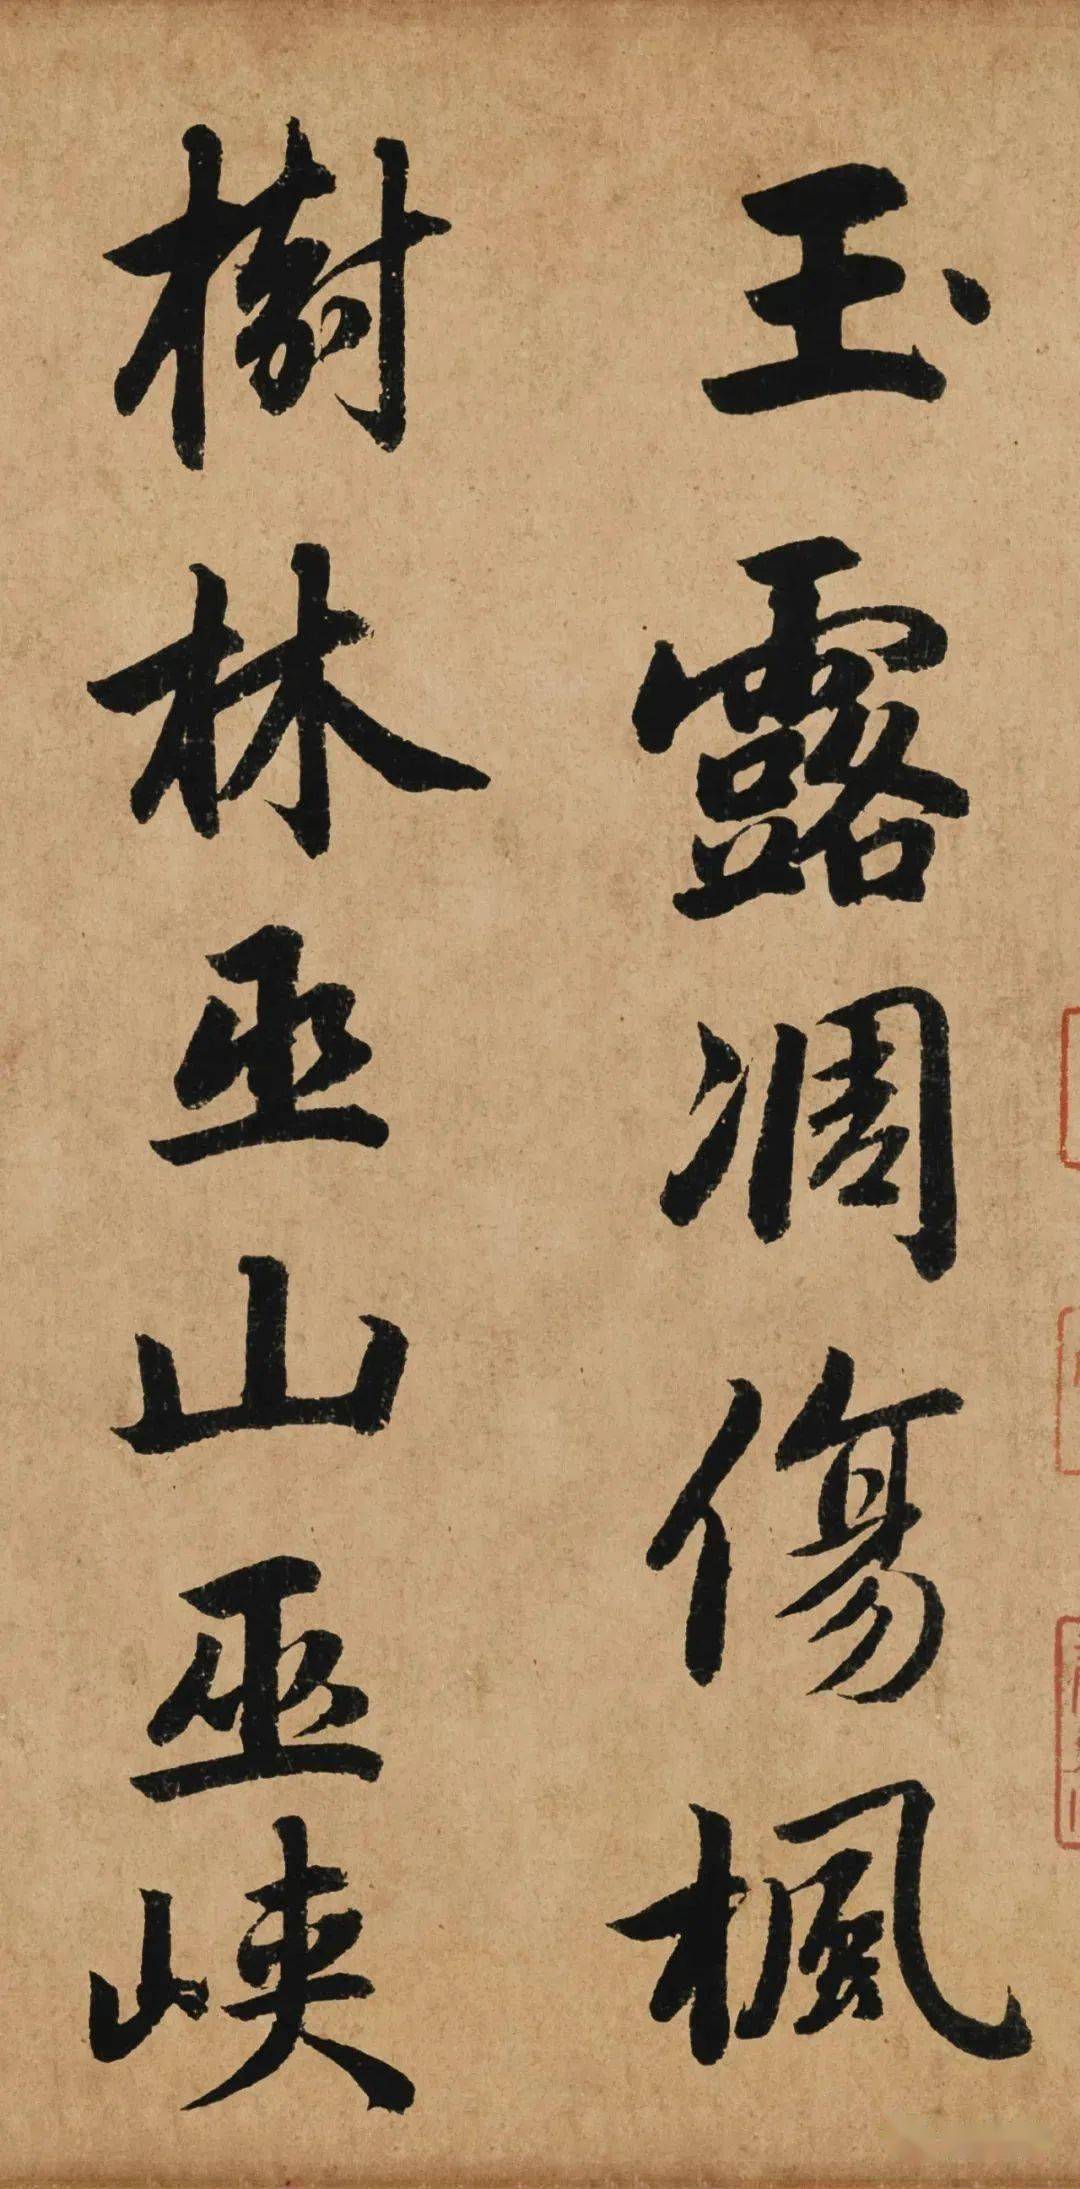 玉露凋傷楓
樹林巫山巫峽